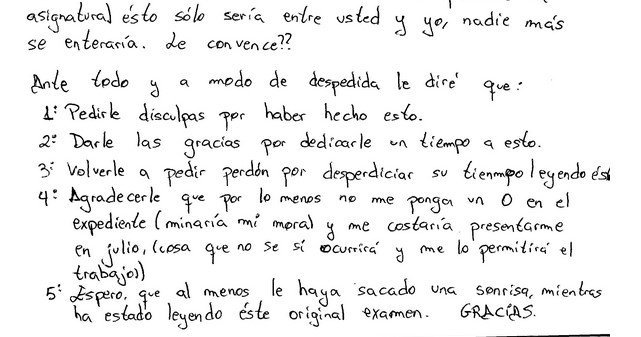 asignatura) ésto sólo sería entre usted y yo, nadie más
se enteraría. Le convence??
Ante todo y a modo de despedida le diré que:
1º Pedirle disculpas por haber hecho esto.
2º Darle las gracias por dedicarle un tiempo a esto.
3º Volverle a pedir perdón por desperdiciar su tienmpo leyendo és
4º Agradecerle que por lo menos no me ponga un 0 en el
expediente (minaría mi moral y me costaría presentarme
en julio, (cosa que no se si ocurrirá y me lo permitirá el
trabajo))
5º Espero, que al menos le haya sacado una sonrisa, mientras
ha estado leyendo éste original examen. GRACIAS.